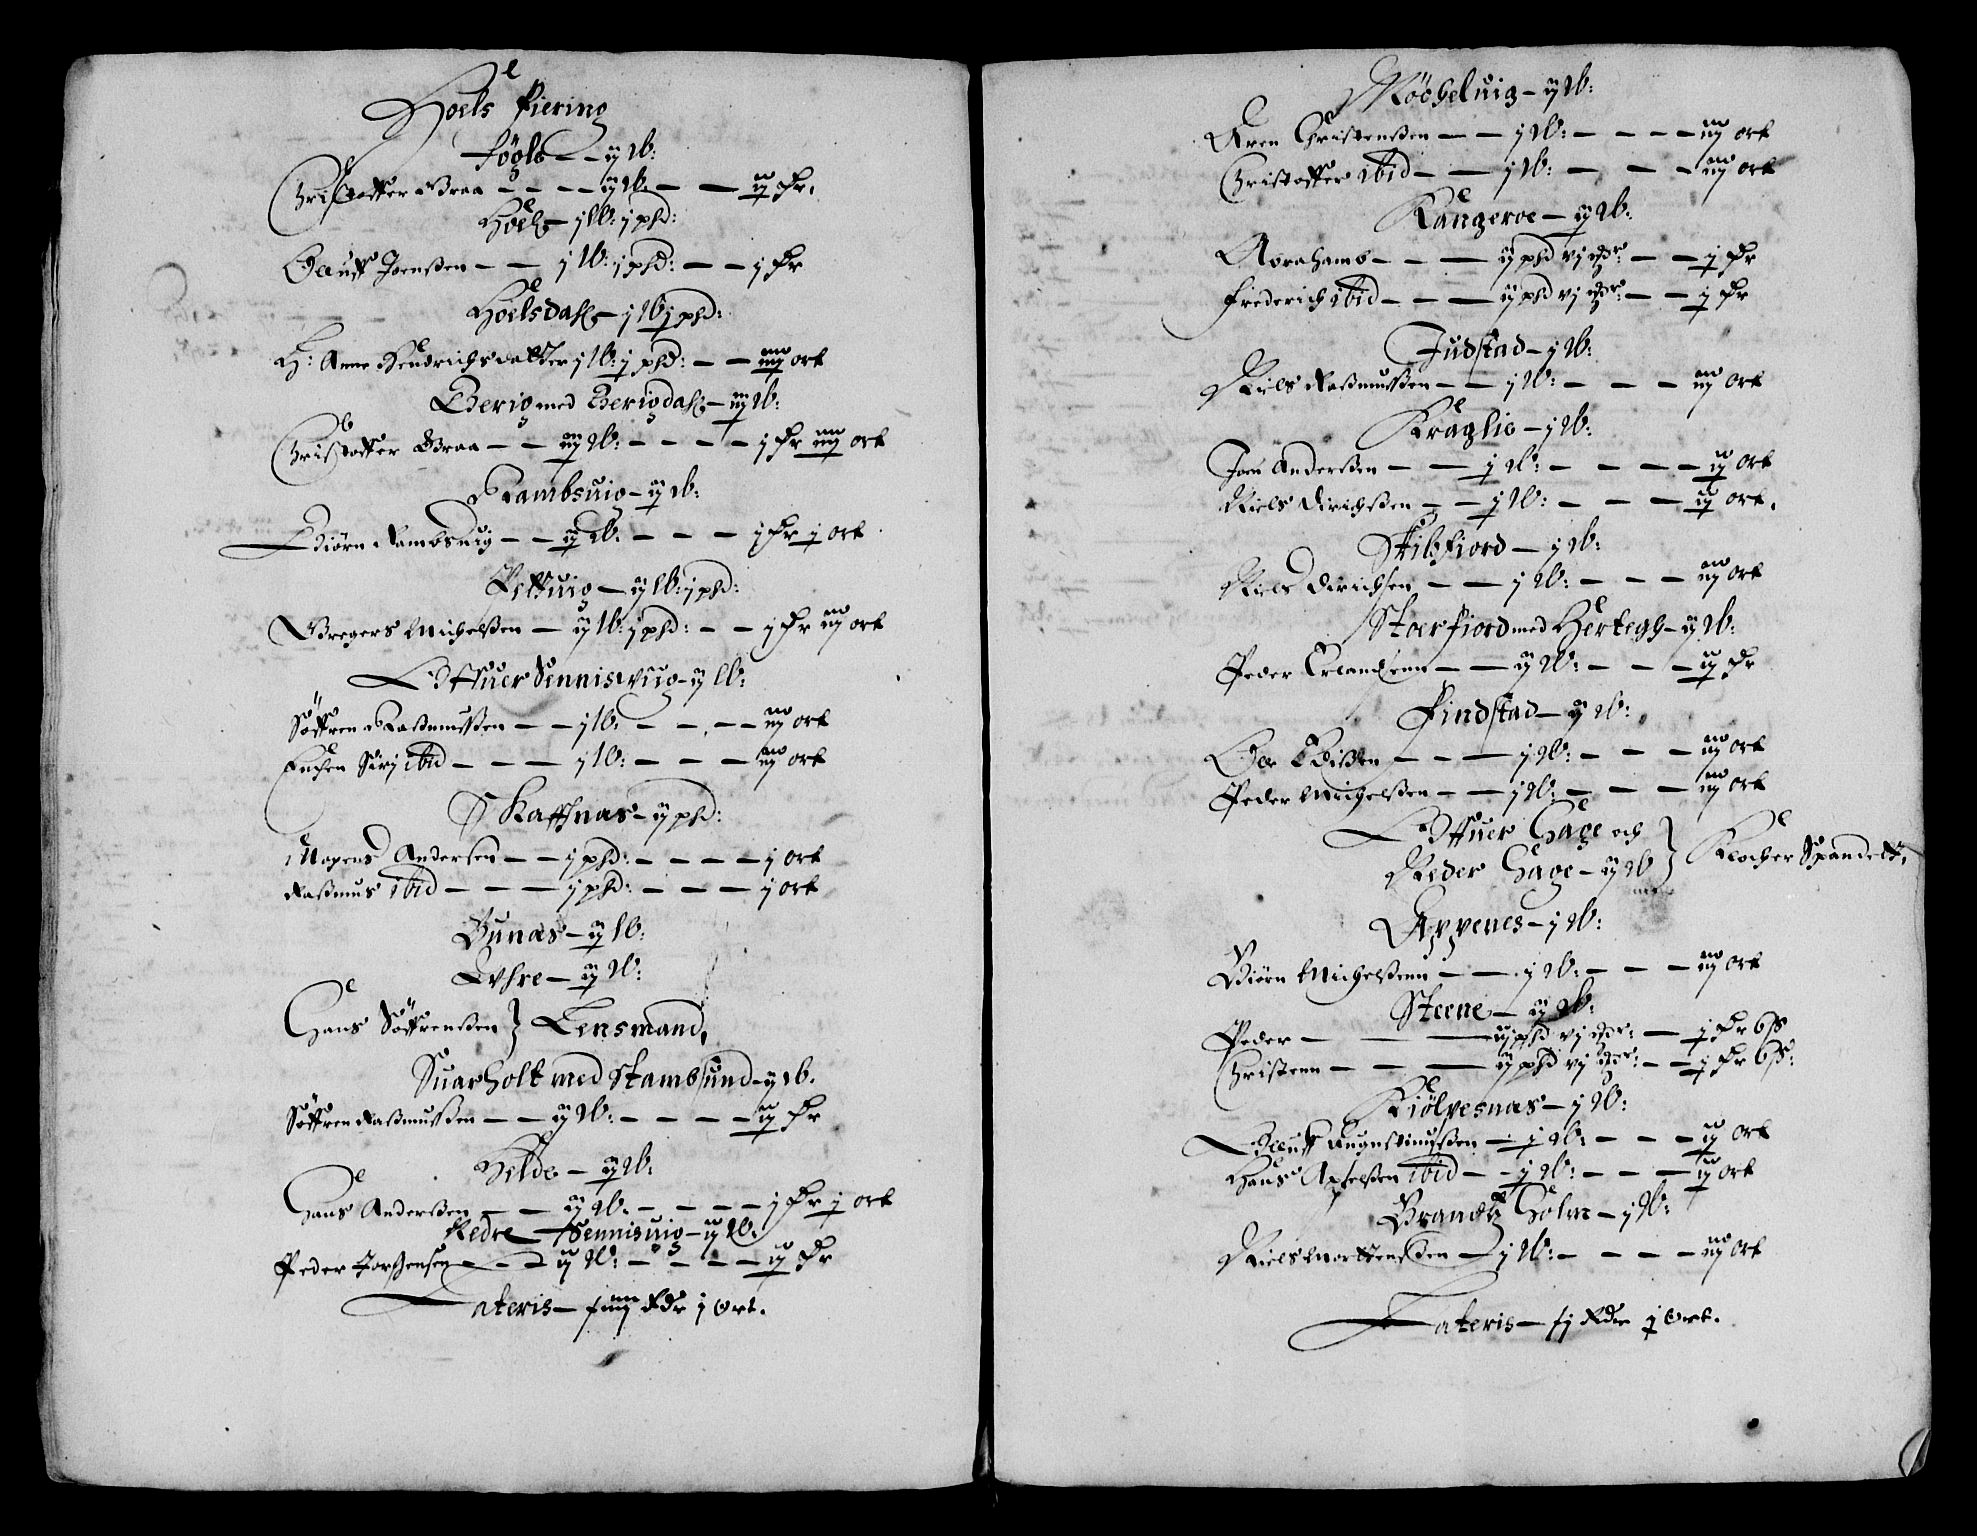 Hoels Fiering
Føgle – – ij lb:
Christoffer Graa – – – – ij lb: – – ij dr.
Hoel – j lb: j phd:
Oluff Joensen – – j lb: j phd: – – j dr
Hoelsdall – j lb j phd:
H: Anne Hendrichsdatter j lb: j phd: – – iiij ort
Berig med Berigdall – iij lb:
Christoffer Graa – – iij lb: – – – – j dr iiij ort
Rambsuig – ij lb:
Biørn Rambsuig – – ij lb: – – – j dr j ort
Pettuig – ij lb: j phd:
Gregers Michelsen – ij lb: j phd: – – j dr iij ort
Øffuer Sennisuiig – ij lb:
Søffren Rasmussen – – j lb: – – – – iij ort
Enchen Siri ibid – – – j lb: – – – iij ort
Skaffnæs – ij phd:
Mogens Andersen – – j phd: – – – – j ort
Rasmus ibid – – – j phd: – – – j ort
Bunæs – ij lb:
Uhre – ij lb:
Hans Søffrensen } Lensmand,
Suarholt med Stambsund – ij lb.
Søffren Rasmussen – – ij lb: – – – – ij dr
Helde – ij lb:
Hans Andersen – – ij lb: – – – – j dr j ort
Nedre Sennisuig – ij lb:
Peder Torstensen – – – ij lb: – – – – ij dr
Lateris – Rdr j ort.
Møgheluig – ij lb:
Aren Christensen – – j lb: – – – – iij ort
Christoffer ibid – – j lb: – – – iij ort
Kangeroe – ij lb:
Abrahamb – – – ij phd vj – – j dr
Frederich ibid – – – ij phd vj – – j dr
Judstad – j lb:
Niels Rasmussen – – j lb: – – – iij ort
Kraglie – j lb:
Joen Andersen – – j lb: – – – – ij ort
Niels Dirichsen – – j lb: – – – ij ort.
Skilsfiord – j lb:
Niels Dirichsen – – j lb: – – – iij ort
Stoerfiord med Hertegh – ij lb:
Peder Erlandsenn – – ij lb: – – – ij dr
Findstad – ij lb:
Ole – – – j lb: – – – iij ort
Peder Michelsen – – j lb: – – – iij ort
Øffuer Hage och
Neder Hage – ij lb } Klocher Spandett,
Eppenes – j lb:
Biørn Michelsenn – – j lb: – – – iij ort
Steene – ij lb:
Peder – – – ij phd vj – j dr 6 ß
Christenn – – – ij phd vj – – j dr 6 ß:
Kiølpesnæs – j lb:
Oluff Augustinussen – j lb: – – – ij ort
Hans Axelsen ibid – – j lb: – – – ij ort
Brandtz Holm – j lb:
Niels Mortensen – j lb: – – – – iij ort
Lateris – Rdr j ort.